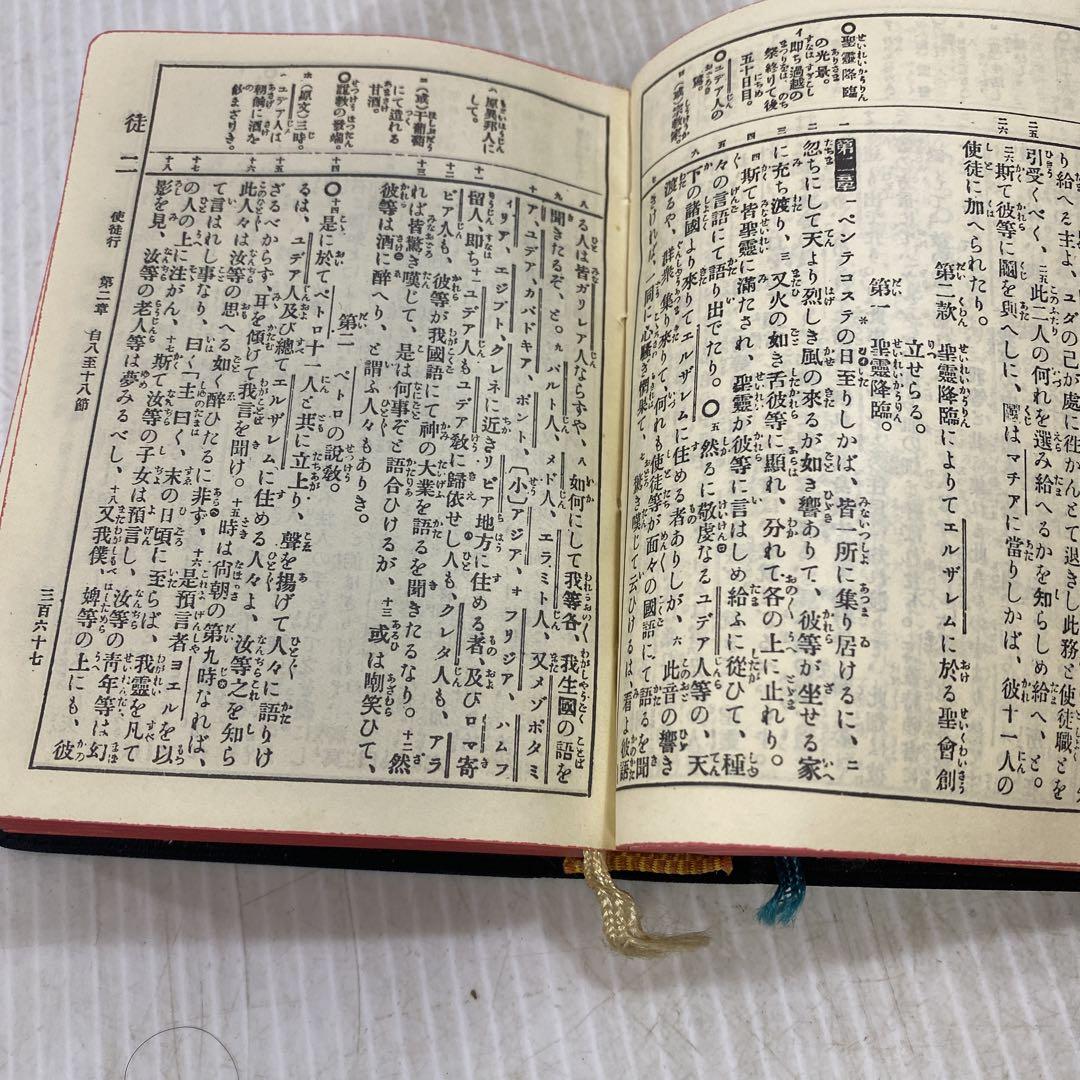 り給へる主よ、ユダの己が處に往かんとて退きし此務と使徒職とを
引受くべく、二五此二人の何れを選み給へるかを知らしめ給へ、と。
二六斯て彼等に鬮を與へしに、鬮はマチアに當りしかば、彼十一人の
使徒に加へられたり。
第二款 聖靈降臨によりてエルザレムに於る聖會創
立せらる。
第一 聖靈降臨。
第二章 一ペンテコステの日至りしかば、皆一所に集り居けるに、二
忽ちにして天より烈しき風の來るが如き響ありて、彼等が坐せる家
に充ち渡り、三又火の如き舌彼等に顯れ、分れて各の上に止れり。
四斯て皆聖靈に滿たされ、聖靈が彼等に言はしめ給ふに從ひて、種
々の言語にて語り出でたり。〇五然るに敬虔なるユデア人等の、天
下の諸國より來りてエルザレムに住める者ありしが、六此音の響き
渡るや、群衆集り來りて、何れも使徒等が面々の國語にて語るを聞
きければ、一同に心騷ぎ惘果て、七驚き嘆じて云ひけるは、看よ彼語
二五
二六
一
二
三
四
五
六
〇聖靈降臨
の光景。
イ即ち過越の
祭終りて後
五十日目。
〇ユデア人の
る人は皆ガリレア人ならずや、八如何にして我等各、我生國の語を
聞きたるぞ、と。九パルト人、メド人、エラミト人、又メゾポタミ
ア、ユデア、カパドキア、ポント、〔小〕アジア、十フリジア、パムフ
ィリア、エジプト、クレネに近きリビア地方に住める者、及びロマ寄
留人、即ち十一ユデア人もユデア敎に歸依せし人も、クレタ人も、アラ
ビア人も、彼等が我國語にて神の大業を語るを聞きたるなり。十二然
れば皆驚き嘆じて、是は何事ぞと語合ひけるが、十三或は嘲笑ひて、
彼等は酒に醉へり、と謂ふ人々もありき。
第二 ペトロの說敎。
〇十四是に於てペトロ十一人と共に立上り、聲を揚げて人々に語りけ
るは、ユデア人及び總てエルザレムに住める人々よ、汝等之を知ら
ざるべからず、耳を傾けて我言を聞け。十五時は尙朝の第九時なれば、
此人々は汝等の思へる如く醉ひたるに非ず、十六是預言者ヨエルを以
て言はれし事なり、曰く「主曰く、末の日頃に至らば、我靈を凡て
の人の上に注がん、十七斯て汝等の子女は預言し、汝等の靑年等は幻
影を見、汝等の老人等は夢みるべし、十八又我僕、婢等の上にも、彼
八
九
十
十一
十二
十三
十四
十五
十六
十七
十八
ハ原異邦人に
して。
ニ(或)干葡萄
にて造れる
甘酒。
ホ(原文)三時。
ヘユデア人は
朝餉に酒を
飮まざりき。
徒 二
使徒行 第二章 自八至十八節
三百六十七